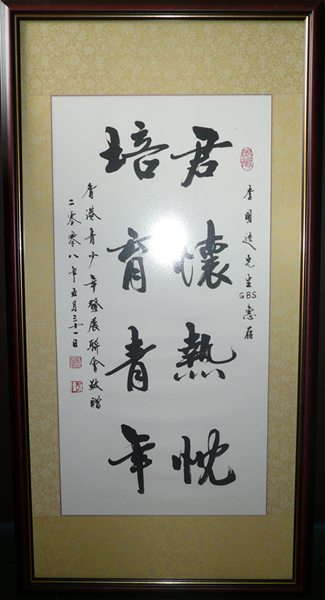 李明逵先生GBS惠存
君懷熱忱
培育青年
香港青少年發展聯會敬贈
二零零八年五月三十一日